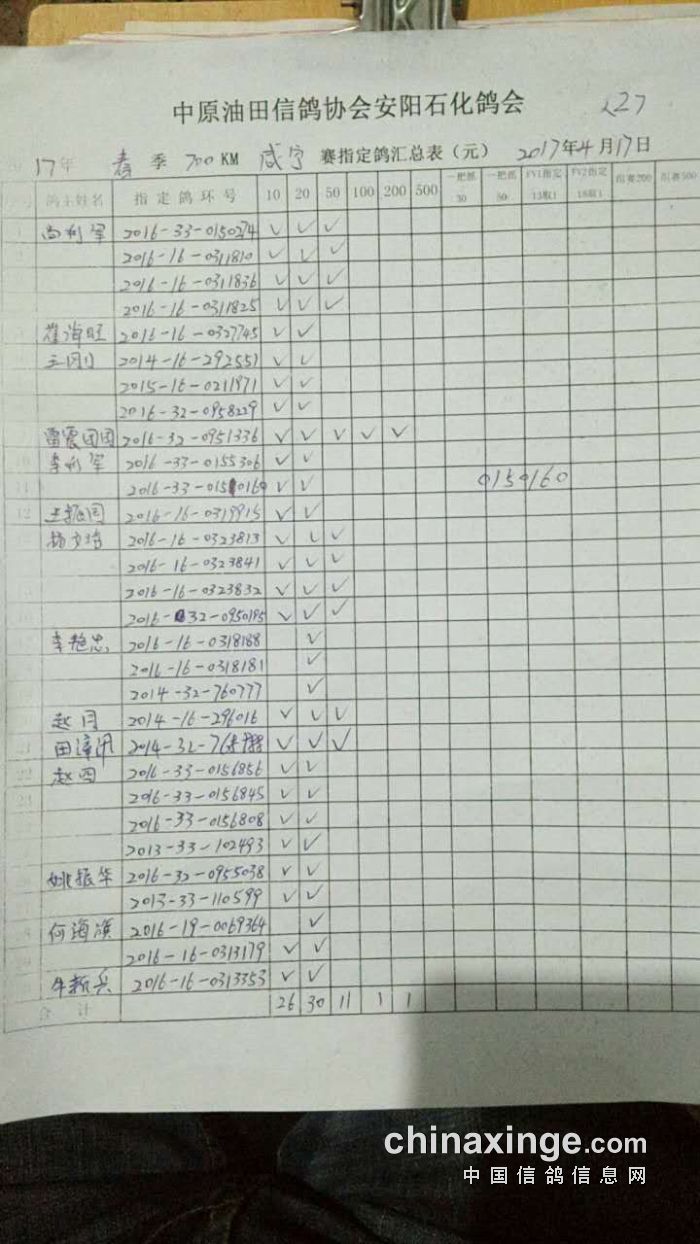 中原油田信鸽协会安阳石化鸽会
227
17年 春 季 700KM 咸宁 赛指定鸽汇总表（元） 2017年4月17日
鸽主姓名 指定鸽环号 10 20 50 100 200 500 一把抓30 一把抓50 FV1指定13取1 FV2指定18取1 组赛200 组赛500
尚利军 2016-33-0150274 ✓ ✓ ✓
2016-16-0311810 ✓ ✓ ✓
2016-16-0311836 ✓ ✓ ✓
2016-16-0311825 ✓ ✓ ✓
崔海旺 2016-16-0327745 ✓ ✓
王刚 2014-16-292551 ✓ ✓
2015-16-0211971 ✓ ✓
2016-32-0958229 ✓ ✓
雷震团团 2016-32-0951336 ✓ ✓ ✓ ✓ ✓
10 李利军 2016-33-0155306 ✓ ✓
11 2016-33-0150160 ✓ ✓ 0150160
12 王振国 2016-16-0319915 ✓ ✓
杨文 2016-16-0323813 ✓ ✓ ✓
2016-16-0323841 ✓ ✓ ✓
2016-16-0323832 ✓ ✓ ✓
2016-32-0950195 ✓ ✓ ✓
李艳忠 2016-16-0318188 ✓
2016-16-0318181 ✓
2014-32-760777 ✓
赵月 2014-16-296016 ✓ ✓ ✓
21 田 2014-32- ✓ ✓ ✓
22 赵四 2016-33-0156856 ✓ ✓
23 2016-33-0156845 ✓ ✓
2016-33-0156808 ✓ ✓
2013-33-102493 ✓ ✓
姚振华 2016-32-0955038 ✓ ✓
2013-33-110599 ✓ ✓
何海滨 2016-19-0069364 ✓
2016-16-0313179 ✓ ✓
牛新兵 2016-16-0313353 ✓ ✓
合计 26 30 11 1 1
chinaxinge.com
中国信鸽信息网